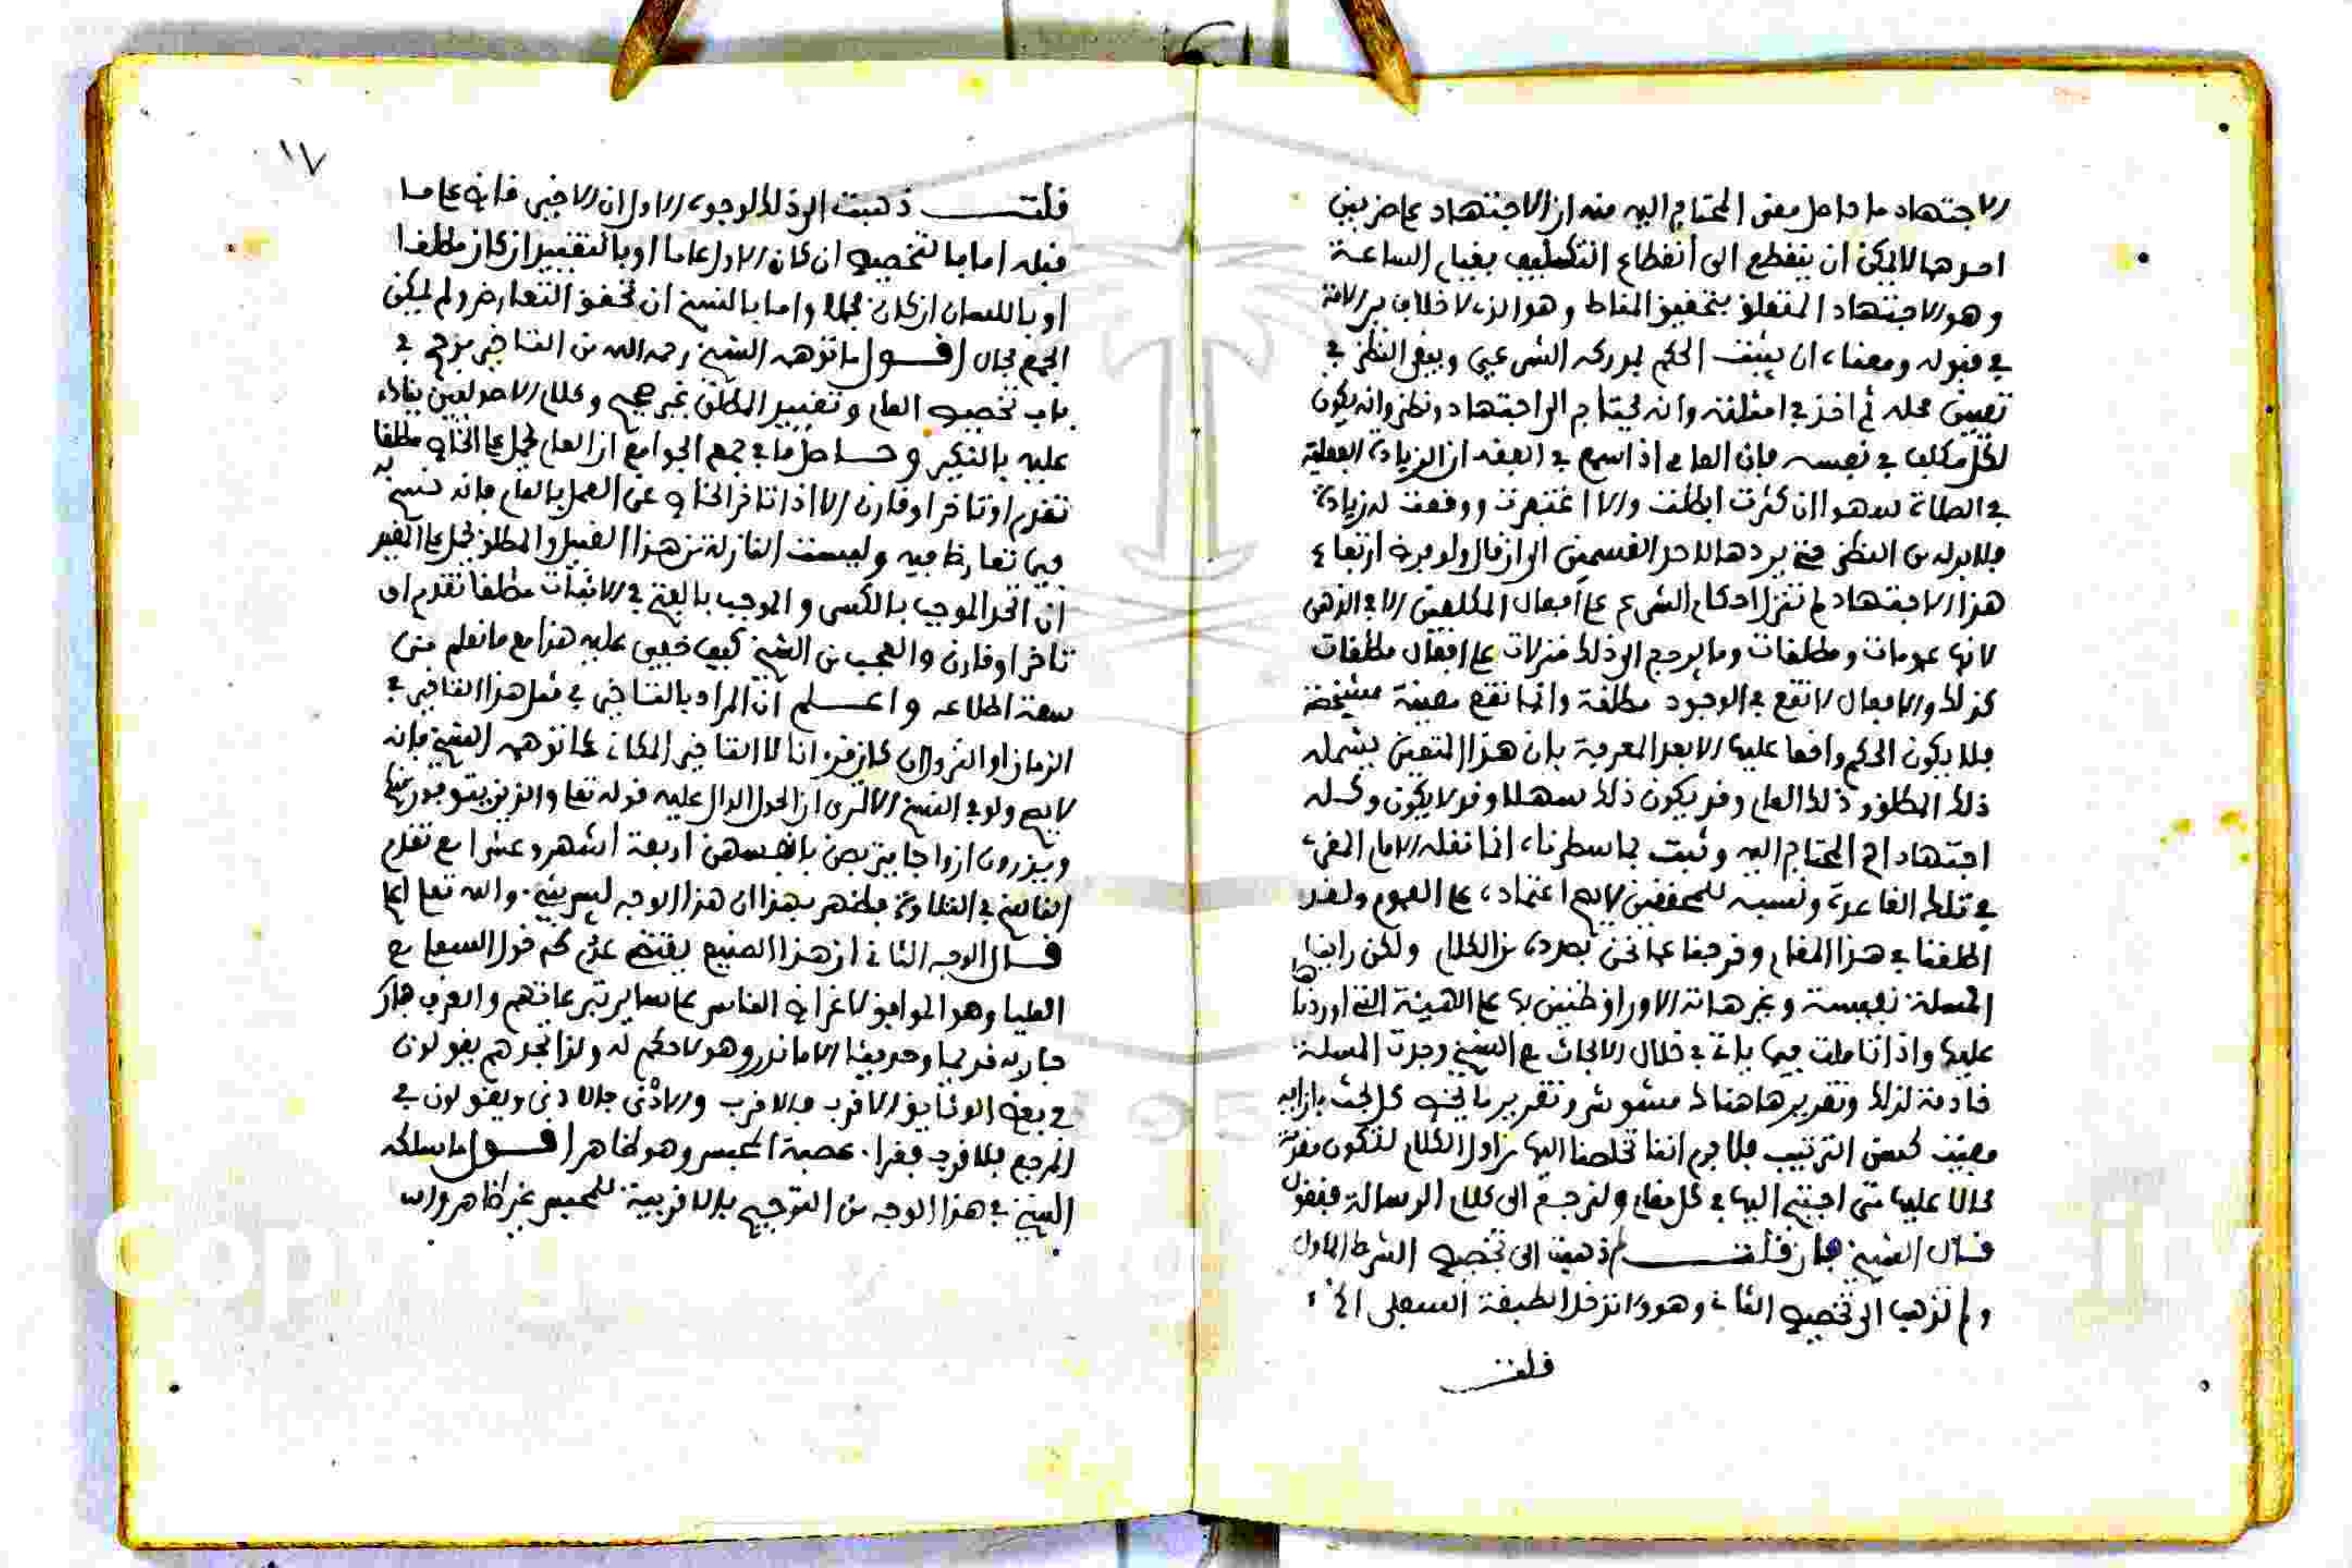 الاجتهاد ما حاصل معنى المحتاج اليه منه ان الاجتهاد على ضربين
احدهما لا يمكن ان ينقطع الى انقطاع التكليف بقيام الساعة
وهو الاجتهاد المتعلق بتحقيق المناط وهو الذي لا خلاف بين الامة
في قبوله ومعناه ان يثبت الحكم بمدركه الشرعي ويبقى النظر في
تعيين محله ثم اخذ في امثلته وانه يحتاج الى اجتهاد ونظر وانه يكون
لكل مكلف في نفسه فان العامي اذا سمع في الفقه ان الزيادة الفعلية
في الصلاة سهوا ان كثرت ابطلت والا اغتفرت ووقعت له زيادة
فلا بد له من النظر حتى يردها لاحد القسمين الى ان قال ولو فرض ارتفاع
هذا الاجتهاد لم تنزل احكام الشرع على افعال المكلفين الا في الذهن
لانها عمومات ومطلقات وما يرجع الى ذلك منزلات على افعال مطلقات
كذلك والافعال لا تقع في الوجود مطلقة وانما تقع معينة مشخصة
فلا يكون الحكم واقعا عليها الا بعد المعرفة بان هذا المتعين يشمله
ذلك المطلق وذلك العام وقد يكون ذلك سهلا وقد لا يكون وكله
اجتهاد اهـ المحتاج اليه وثبت بما سطرناه ان ما نقله الامام المقري
في تلك القاعدة ونسبه للمحققين لا يصح اعتماده على العموم ولقد
اطلقنا في هذا المقام وخرجنا عما نحن بصدده من الكلام ولكن راينا
المسئلة نفيسة وغير هاته الاوراق ظنين بها على الهيئة التي اوردناها
عليها واذا تاملت فيما ياتي في خلال الابحاث مع الشيخ وجدت المسئلة
خادمة لذلك وتقريرها هناك مشوش وتقرير ما يخص كل بحث بازائه
مفيت لحسن الترتيب فلا جرم اننا تخلصنا اليها من اول الكلام لتكون مقررة
محالا عليها متى احتيج اليها في كل مقام ولنرجع الى كلام الرسالة فنقول
قال الشيخ فان قلت لم ذهبت الى تخصيص الشرط الاول
ولم تذهب الى تخصيص الثاني وهو لا تدخل الطبقة السفلى الخ
قلت
١٧
قلت ذهبت الى ذلك لوجوه الاول ان الاخير قاض على ما
قبله اما بالتخصيص ان كان الاول عاما او بالتقييد ان كان مطلقا
او بالبيان ان كان مجملا واما بالنسخ ان تحقق التعارض ولم يمكن
الجمع بحال اقول ما توهمه الشيخ رحمه الله من التاخير مرجح في
باب تخصيص العام وتقييد المطلق غير صحيح وكلام الاصوليين يناد
عليه بالنكير وحاصل ما في جمع الجوامع ان العام يحمل على الخاص مطلقا
تقدم او تاخر او قارن الا اذا تاخر الخاص عن العمل بالعام فانه نسخ له
فيما تعارضا فيه وليست النازلة من هذا القبيل والمطلق يحمل على المقيد
ان اتحد الموجب بالكسر والموجب بالفتح في الاثبات مطلقا تقدم او
تاخر او قارن والعجب من الشيخ كيف خفي عليه هذا مع ما نعلم من
سعة اطلاعه واعلم ان المراد بالتاخير في مثل هذا التاخير في
الزمان او النزول ان كان قرءانا لا التاخير المكاني كما توهمه الشيخ فانه
لا يصح ولو في النسخ الا ترى ان الحول الدال عليه قوله تعالى والذين يتوفون منكم
ويذرون ازواجا يتربصن بانفسهن اربعة اشهر وعشرا مع تقدم
الناسخ في التلاوة فظهر بهذا ان هذا الوجه ليس بشيء والله تعالى اعلم
قال الوجه الثاني ان هذا الصنيع يقتضي عدم دخول السفلى مع
العليا وهو الموافق لاغراض الناس على ساير تبرعاتهم والعرف هذا
جار به قديما وحديثا الا ما ندر وهو لا حكم له ولذا تجدهم يقولون
في بعض الوثايق الاقرب فالاقرب والادنى فالادنى ويقولون في
المرجع فلاقرب فقراء عصبة المحبس وهو ظاهر اقول ما سلكه
الشيخ في هذا الوجه من التوجيه بالاقربية للمحبس غير ظاهر والله